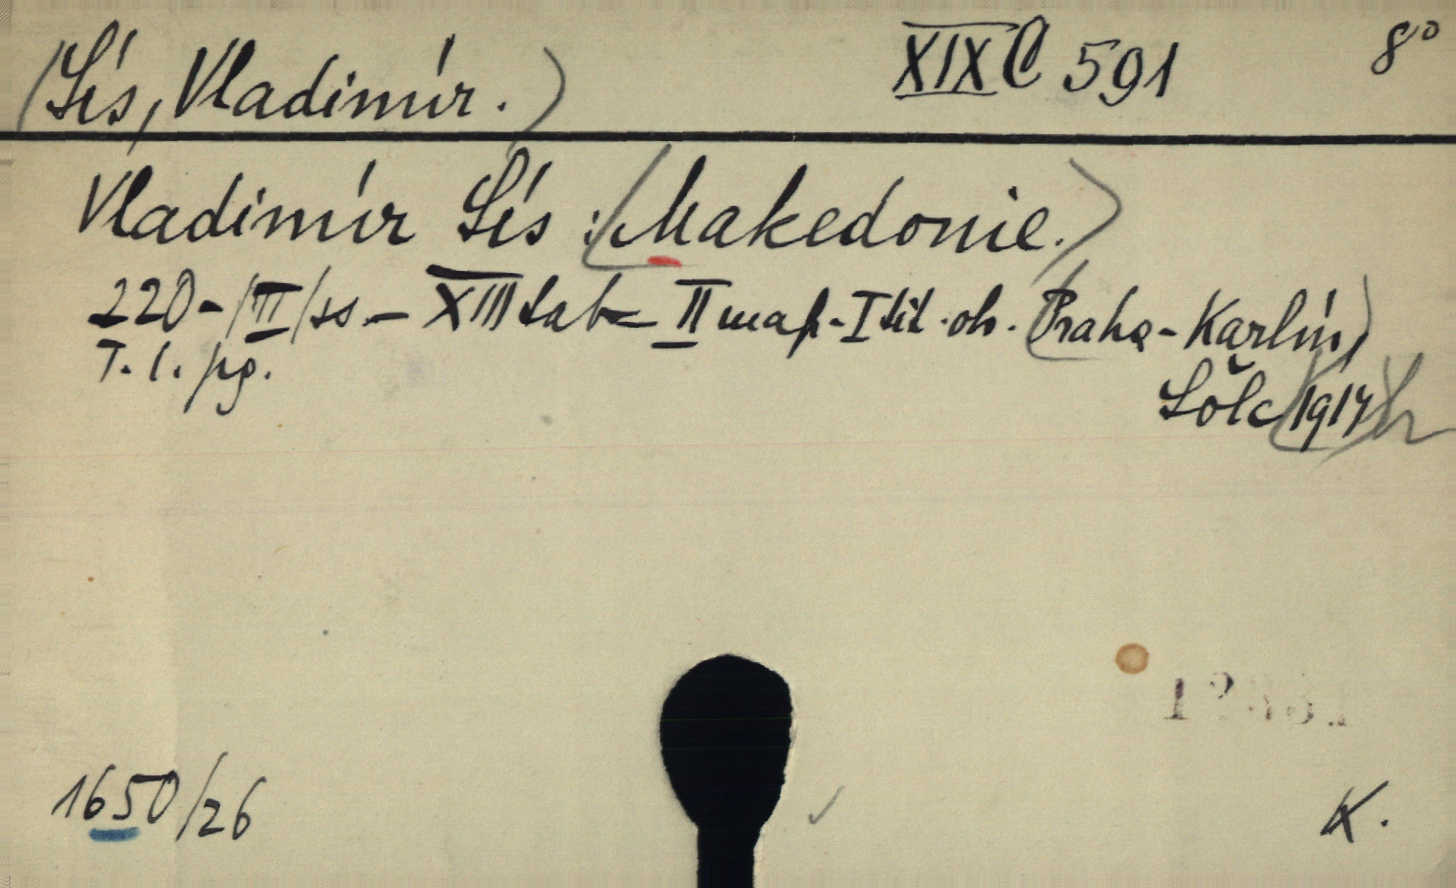 (Sís, Vladimír.) XIX C 591 8°
Vladimír Sís: (Makedonie.)
220-/III/ss.- XIII tab.- II map.- I tit. ob. (Praha-Karlín,
T. l. pg. Šolc 1917)
1650/26 K.